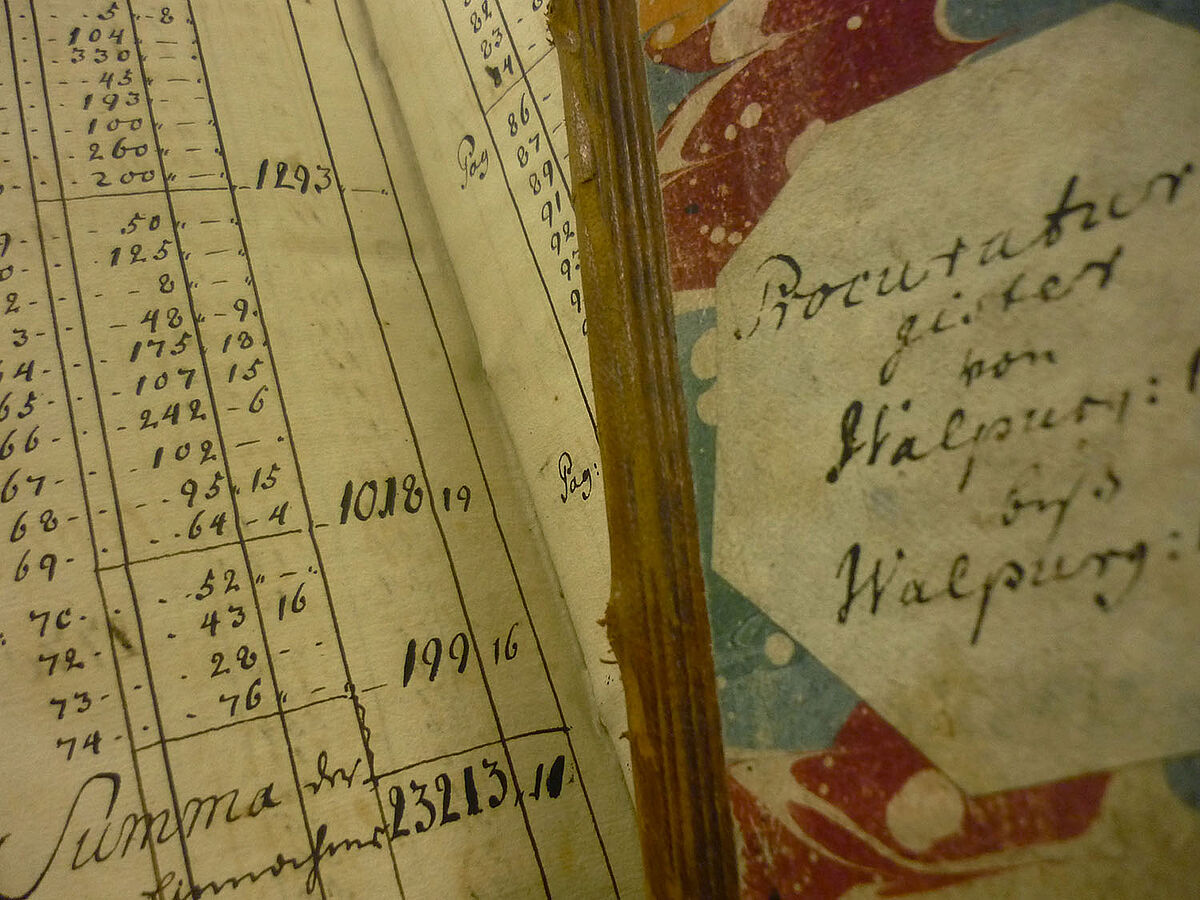 5 „ 8 .
104 „ — .
330 „ — .
45 „ — .
193 „ — .
100 „ — .
260 „ — .
200 „ — . 1293 „ — .
50 „ — .
125 „ — .
8 „ — .
3 - 48 „ 9 .
64 - 175 . 18 .
65 - 107 15
66 - 242 - 6
67 - 102 — .
68 - 95 . 15
69 - 64 - 4 1018 19
70 - 52 „ — .
72 - 43 16
73 - 28 - -
74 - 76 „ — 199 16
Summa der 23213 . 11
82
83
84
Pag 86
87
89
91
92
Pag:
Procuratur
gister
von
Walpurg:
biß
Walpurg: